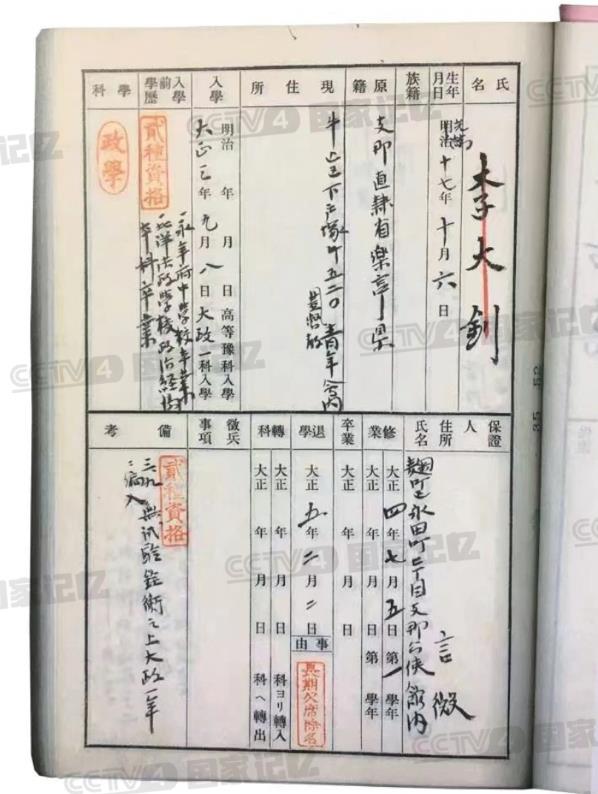 氏名
李大釗
生年月日
光緒
明治十七年十月六日
族籍
原籍
支那直隷省楽亭県
現住所
牛込区下戸塚町五二〇 青年會内
入學
明治 年 月 日 高等豫科入學
大正三年九月八日大政一科入學
入學前學歷
貳種資格
一永年府中學校卒業
一北洋法政學校政治經済
本科卒業
學科
政學
保證人
住所
氏名
麹町区永田町二丁目支那公使館内
言微
修業
大正四年七月五日第一學年
大正 年 月 日第 學年
卒業
大正 年 月 日
退學
大正五年二月二日
事由
長期欠席除名
轉科
大正 年 月 日 科ヨリ轉入
大正 年 月 日 科ヘ轉出
徵兵事項
備考
貳種資格
三、九、無試験詮衡之上大政一年
ニ編入
CCTV4 国家记忆